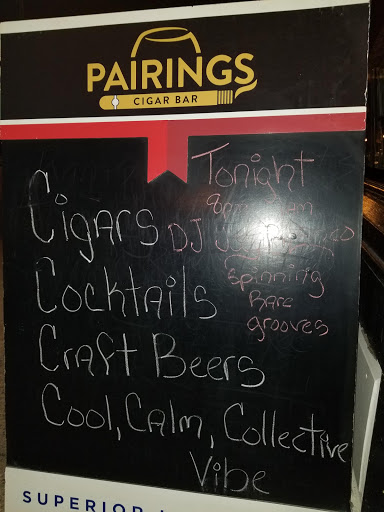 PAIRINGS
CIGAR BAR
Tonight
DJ
spinning
Rare
grooves
Cigars
Cocktails
Craft Beers
Cool, Calm, Collective
Vibe
SUPERIOR